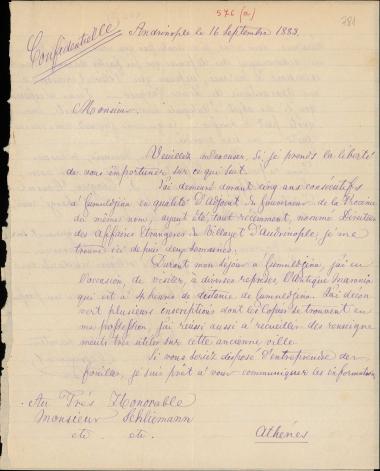 576 (a)
781
Confidentielle
Andrinople le 16 Septembre 1883.
Monsieur.
Veuillez m'excuser. Si je prends la liberté
de vous importuner sur ce qui suit.
J'ai demeuré durant cinq ans consécutifs
à Gumuldjina en qualité d'Adjoint du Gouverneur de la Province
du même nom; ayant été, tout recemment, nommé Directeur
des Affaires Etrangères du Villayet d'Andrinople, je me
trouve ici depuis deux semaines.
Durant mon séjour à Gumuldjina, j'ai eu
l'occasion, de visiter, à diverses reprises, l'Antique
qui est à 4 heures de distance de Gumuldjina. J'ai décou
vert plusieurs inscriptions dont les copies se trouvent en
ma possession. J'ai réussi aussi à recueiller des renseigne
ments très utiles sur cette ancienne ville.
Si vous seriez disposé d'entreprendre des
fouilles, je suis prêt à vous communiquer les informations
Au Très Honorable
Monsieur Schliemann
etc. etc.
Athènes